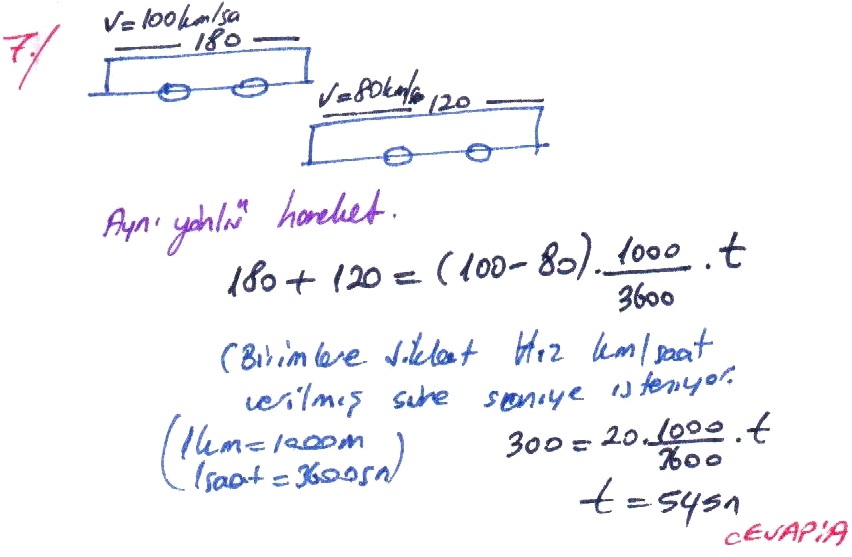 7./
V=100km/sa
180
V=80km/sa
120
Aynı yönlü hareket.
180 + 120 = (100-80) . 1000/3600 . t
(Birimlere dikkat Hız km/saat
verilmiş süre saniye isteniyor.
(1km=1000m
1saat=3600sn)
300 = 20 . 1000/3600 . t
t = 54sn
CEVAP:A